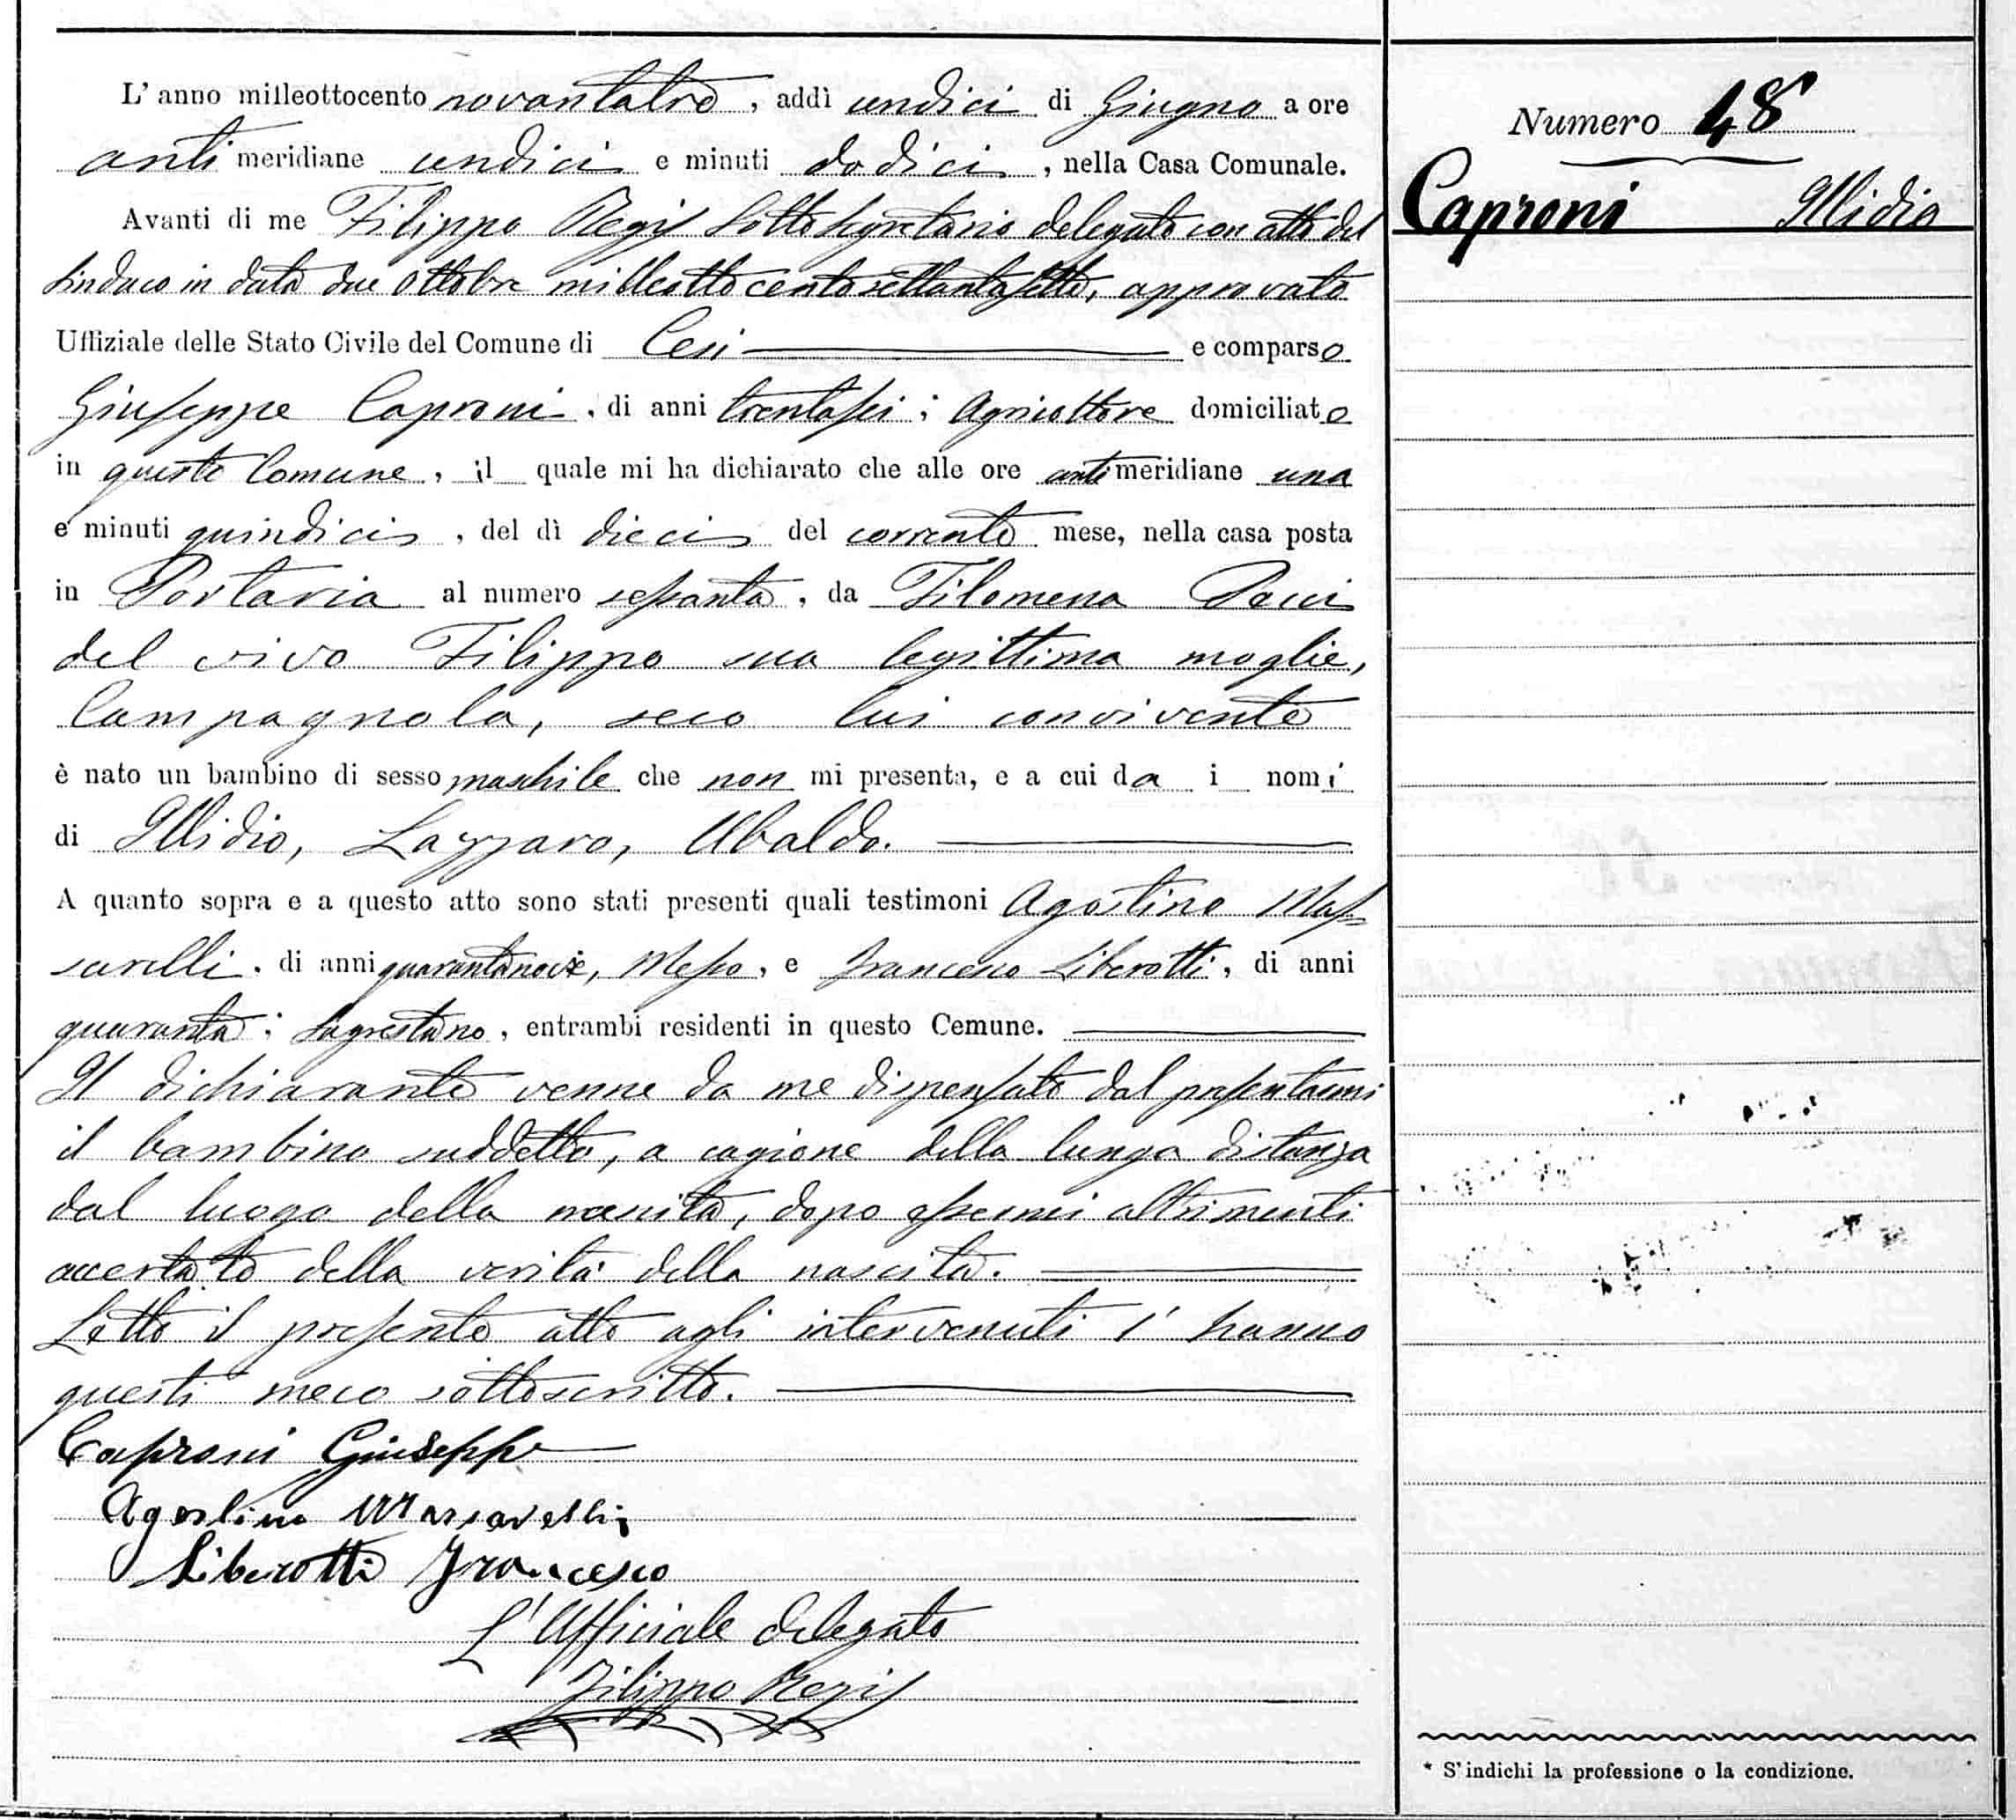 L' anno milleottocento novantatrè, addì undici di Giugno a ore
anti meridiane undici e minuti dodici, nella Casa Comunale.
Avanti di me Filippo Regis Sotto Segretario delegato con atto del
Sindaco in data due Ottobre milleottocentosettantasette, approvato
Uffiziale delle Stato Civile del Comune di Cesi e comparso
Giuseppe Caproni, di anni trentasei; Agricoltore domiciliato
in questo Comune, il quale mi ha dichiarato che alle ore antimeridiane una
e minuti quindici, del dì dieci del corrente mese, nella casa posta
in Portaria al numero sessanta, da Filomena Pacci
del vivo Filippo sua legittima moglie,
Campagnola, seco lui convivente
è nato un bambino di sesso maschile che non mi presenta, e a cui da i nomi
di Illidio, Lazzaro, Ubaldo.
A quanto sopra e a questo atto sono stati presenti quali testimoni Agostino Mas-
sarelli, di anni quarantanove, Messo, e Francesco Liberotti, di anni
quaranta; Sagrestano, entrambi residenti in questo Cemune.
Il dichiarante venne da me dispensato dal presentarmi
il bambino suddetto, a cagione della lunga distanza
dal luogo della nascita, dopo essermi altrimenti
accertato della verità della nascita.
Letto il presente atto agli intervenuti l' hanno
questi meco sottoscritto.
Caproni Giuseppe
Agostino Massarelli
Liberotti Francesco
L'Ufficiale delegato
Filippo Regis
Numero 48
Caproni Illidio
* S'indichi la professione o la condizione.